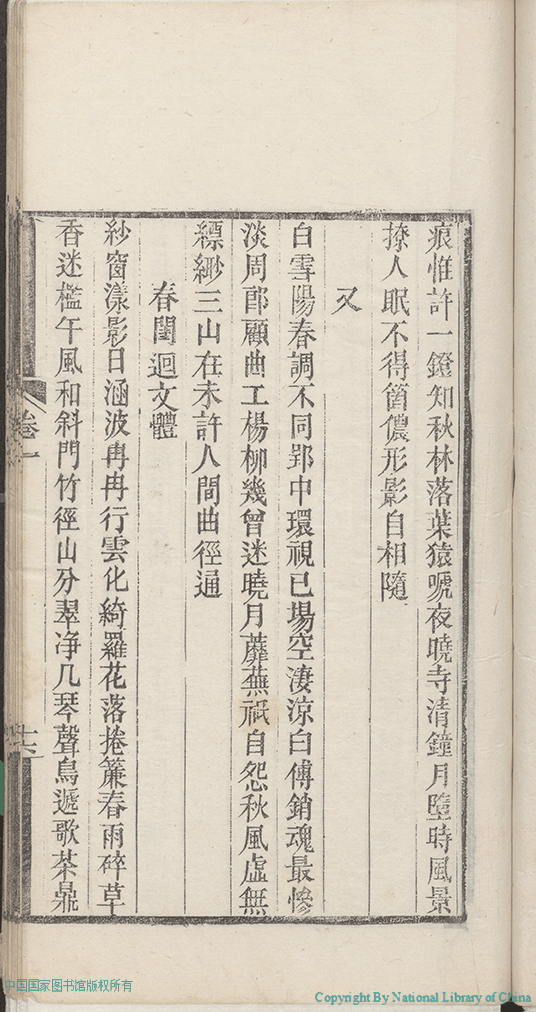 痕惟許一鐙知秋林落葉猿嗁夜曉寺清鐘月墮時風景
撩人眠不得箇儂形影自相隨
又
白雪陽春調不同郢中環視已場空淒涼白傅銷魂最慘
淡周郎顧曲工楊柳幾曾迷曉月蘼蕪祇自怨秋風虛無
縹緲三山在未許人間曲徑通
春閨迴文體
紗窗漾影日涵波冉冉行雲化綺羅花落捲簾春雨碎草
香迷檻午風和斜門竹徑山分翠净几琴聲鳥遞歌茶鼎
卷一
十六
中国国家图书馆版权所有
Copyright By National Library of China